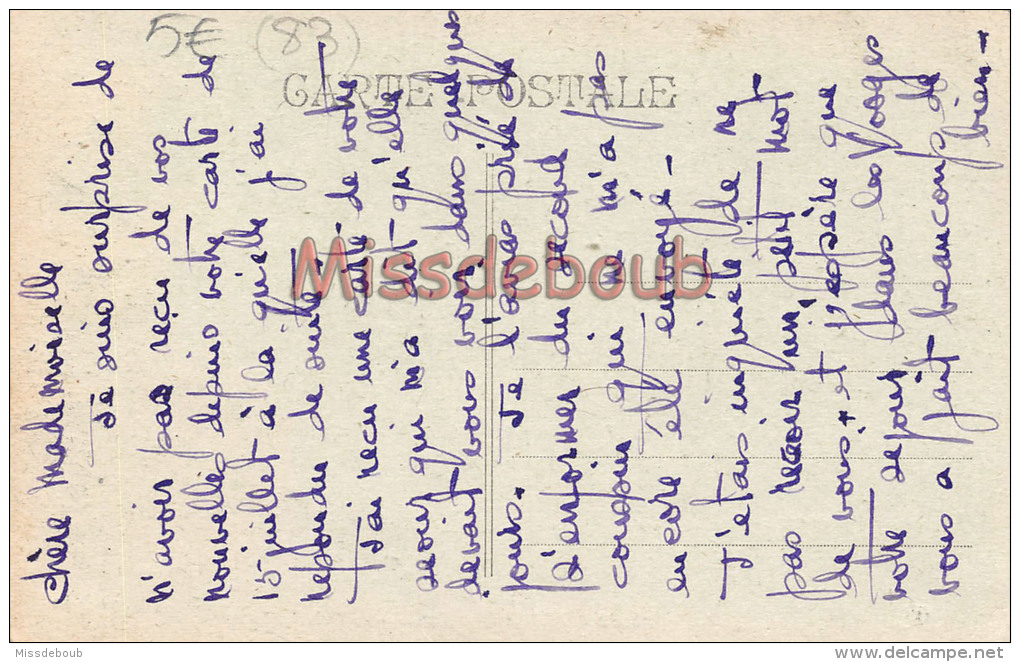 5€ (83)
CARTE POSTALE
Chère Mademoiselle
Je suis surprise de
n'avoir pas reçu de vos
nouvelles depuis votre carte de
15 juillet à la quielle j'ai
repondu de suite.
J'ai reçu une carte de votre
seour qui m'a dit qu'elle
devait vous voir dans quelques
jours. Je l'avais priée de
d'enformer du second
coupon qui ne m'a pas
encore été envoyé -
J'étais inquiete de ne
pas recevoir un petit mot
de vous. et j'espère que
votre sejour dans les Vosges
vous a fait beaucoup de
bien -
Missdeboub
Missdeboub
delcampe.net